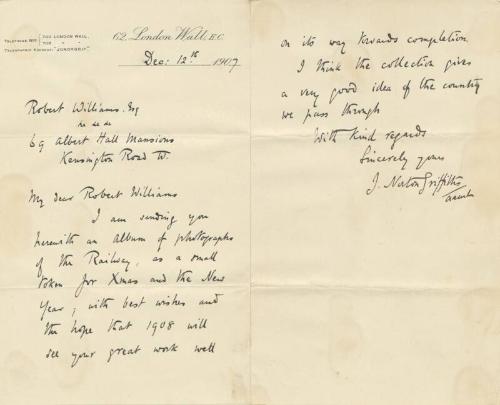 62, London Wall, E.C.
Dec: 12th 1907
Robert Williams. Esq
69 Albert Hall Mansions
Kensington Road W.
My dear Robert Williams
I am sending you
herewith an album of photographs
of the Railway, as a small
token for Xmas and the New
Year; with best wishes and
the hope that 1908 will
see your great work well
on its way towards completion.
I think the collection gives
a very good idea of the country
we pass through
With kind regards
Sincerely yours
J. Norton Griffiths